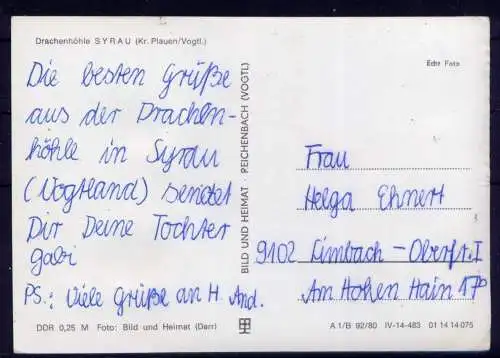 Drachenhöhle SYRAU (Kr. Plauen/Vogtl.)
Die besten Grüße
aus der Drachen-
höhle in Syrau
(Vogtland) sendet
Dir Deine Tochter
gabi
PS.: Viele Grüße an H. And.
DDR 0,25 M Foto: Bild und Heimat (Darr)
BILD UND HEIMAT · REICHENBACH (VOGTL)
Echt Foto
Frau
Helga Ehnert
9102 Limbach-Oberfr. I
Am Hohen Hain 17b
A 1/B 92/80 IV-14-483 01 14 14 075